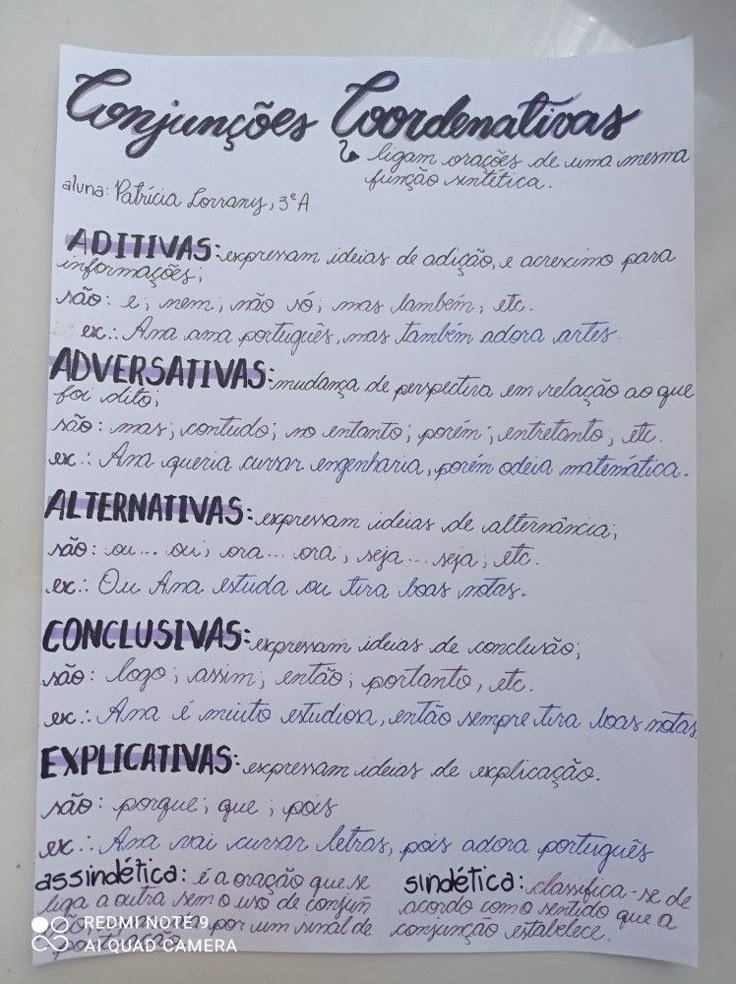 Conjunções Coordenativas
ligam orações de uma mesma
função sintética.
aluna: Patrícia Lorrany, 3ºA
ADITIVAS: expressam ideias de adição, e acrescimo para
informações;
são: e; nem; não só; mas também; etc.
ex.: Ana ama português, mas também adora artes.
ADVERSATIVAS: mudança de perspectiva em relação ao que
foi dito;
são: mas; contudo; no entanto; porém; entretanto; etc.
ex.: Ana queria cursar engenharia, porém odeia matemática.
ALTERNATIVAS: expressam ideias de alternância;
são: ou... ou; ora... ora; seja... seja; etc.
ex.: Ou Ana estuda ou tira boas notas.
CONCLUSIVAS: expressam ideias de conclusão;
são: logo; assim; então; portanto, etc.
ex.: Ana é muito estudiosa, então sempre tira boas notas.
EXPLICATIVAS: expressam ideias de explicação.
são: porque; que; pois
ex.: Ana vai cursar letras, pois adora português
assindética: é a oração que se
liga a outra sem o uso de conjun
por um sinal de
sindética: classifica-se de
acordo com o sentido que a
conjunção estabelece.
REDMI NOTE 9
AI QUAD CAMERA